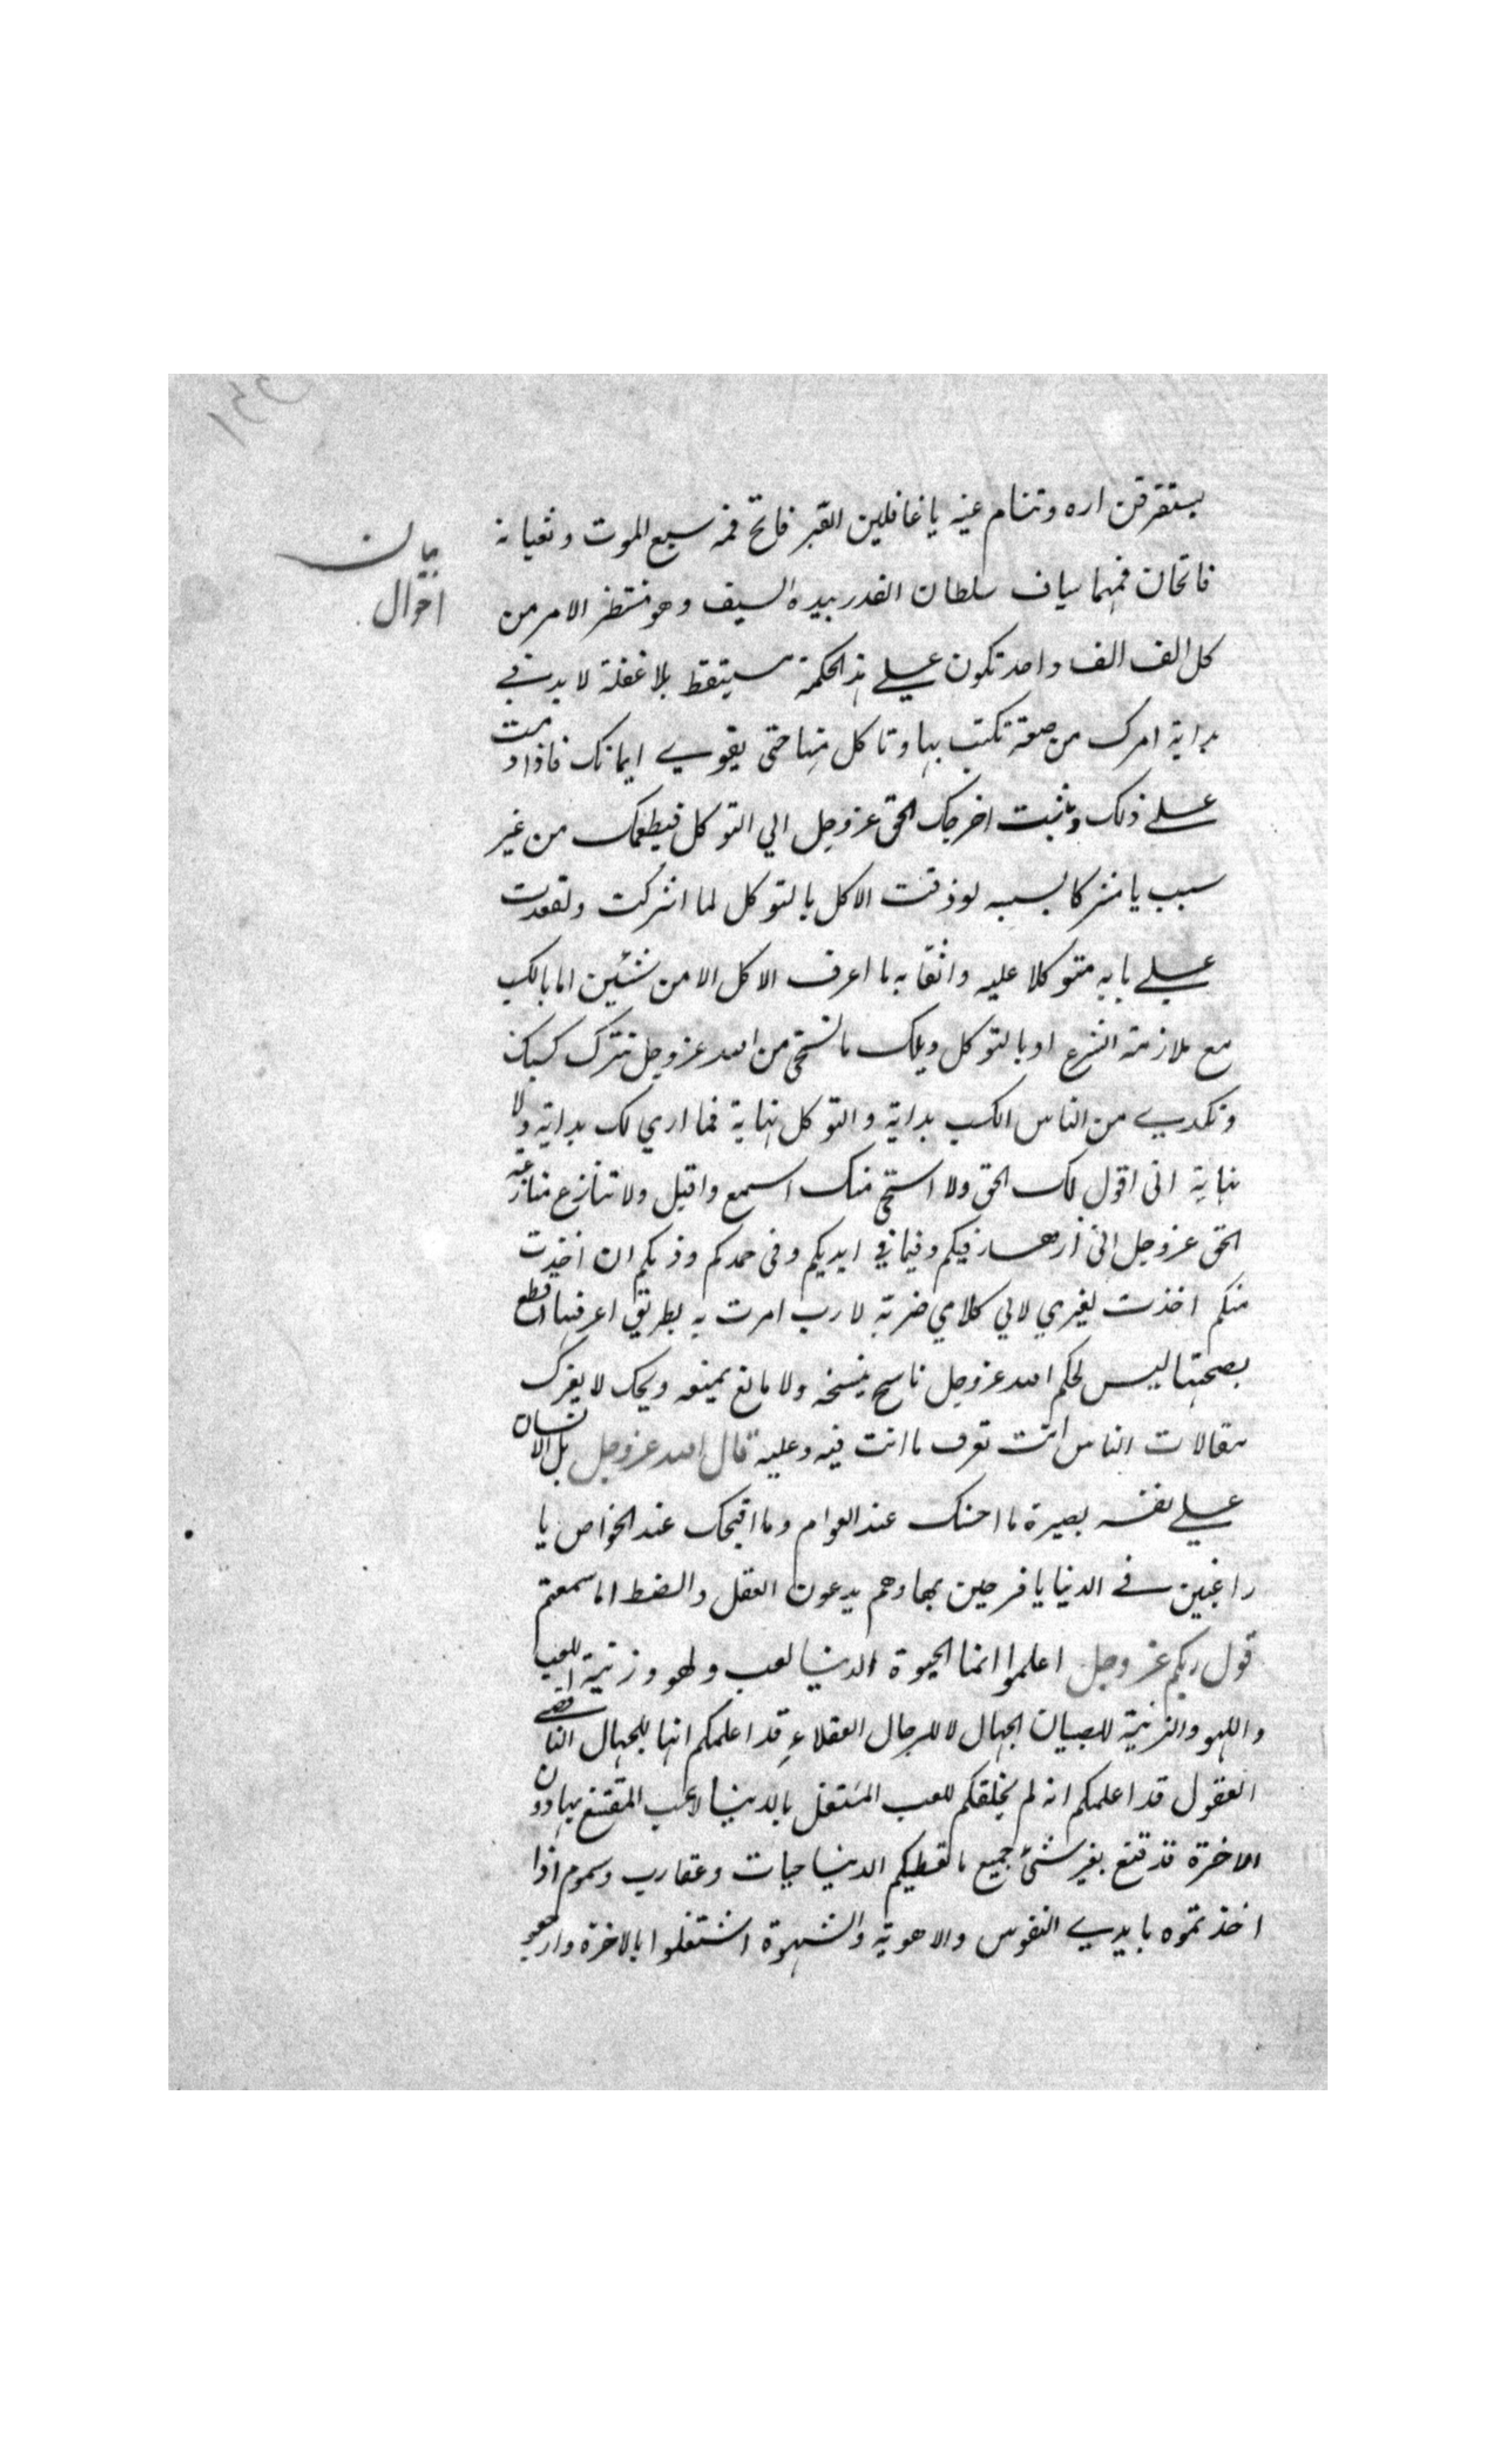 يستقر قراره وتنام عينه يا غافلين القبر فاتح فمه سبع الموت وثعبانه
فاتحان فمهما سياف سلطان القدر بيده السيف وهو منتظر الامر من
كل الف الف واحد تكون علي هذه الحكمة مستيقظ بلا غفلة لا بد في
بداية امرك من صنعة تكتب بها وتاكل منها حتى يقوي ايمانك فاذا دمت
علي ذلك وثبت اخرجك الحق عز وجل الي التوكل فيطعمك من غير
سبب يا مشركا بسببه لو ذقت الاكل بالتوكل لما اشركت ولقعدت
علي بابه متوكلا عليه واثقا به ما اعرف الاكل الا من شئين اما بالكسب
مع ملازمة الشرع او بالتوكل ويلك ما تستحي من الله عز وجل تترك كسبك
وتكدي من الناس الكسب بداية والتوكل نهاية فما اري لك بداية ولا
نهاية انى اقول لك الحق ولا استحي منك اسمع واقبل ولا تنازع منازعة
الحق عز وجل انى ازهد فيكم وفيما في ايديكم وفى حمدكم وذمكم ان اخذت
منكم اخذت لغيري لا لي كلامي ضربة لازب امرت به بطريق اعرفها اقطع
بصحتها ليس لحكم الله عز وجل ناسخ ينسخه ولا مانع يمنعه ويحك لا يغرك
مقالات الناس انت تعرف ما انت فيه وعليه قال الله عز وجل بل الانسان
علي نفسه بصيرة ما احسنك عند العوام وما اقبحك عند الخواص يا
راغبين في الدنيا يا فرحين بها وهم يدعون العقل والضبط اما سمعتم
قول ربكم عز وجل اعلموا انما الحيوة الدنيا لعب ولهو وزينة اللعب
واللهو والزينة للصبيان الجهال لا للرجال العقلاء قد اعلمكم انها للجهال الناقصي
العقول قد اعلمكم انه لم يخلقكم للعب المشتغل بالدنيا لاعب المقتنع بها دون
الاخرة قد قنع بغير شئ جميع ما تعطيكم الدنيا حيات وعقارب وسموم اذا
اخذتموه بايدي النفوس والاهوية والشهوة اشتغلوا بالاخرة وارجعو
بيان
احوال